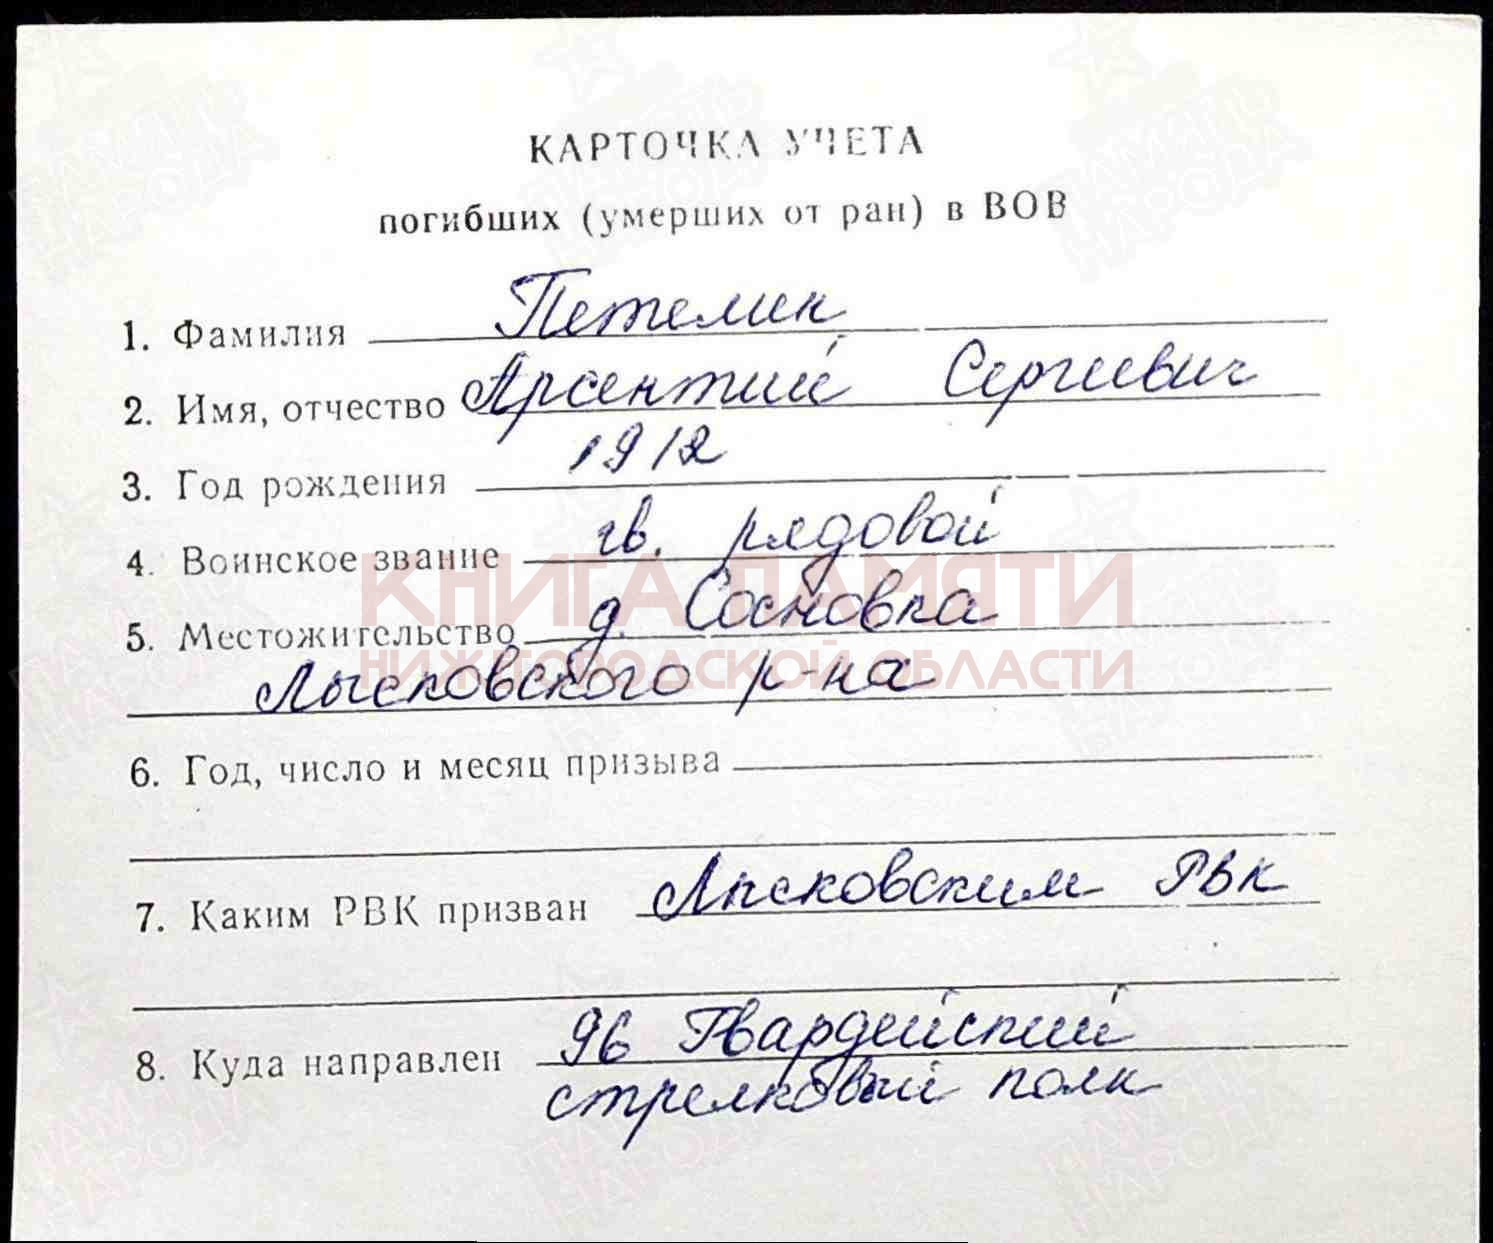 КАРТОЧКА УЧЕТА
погибших (умерших от ран) в ВОВ
1. Фамилия Петелин
2. Имя, отчество Арсентий Сергиевич
3. Год рождения 1912
4. Воинское звание гв. рядовой
КНИГА ПАМЯТИ
5. Местожительство д. Сосновка
НИЖЕГОРОДСКОЙ ОБЛАСТИ
Лысковского р-на
6. Год, число и месяц призыва
7. Каким РВК призван Лысковским РВК
8. Куда направлен 96 Гвардейский
стрелковый полк
ПАМЯТЬ
НАРОДА